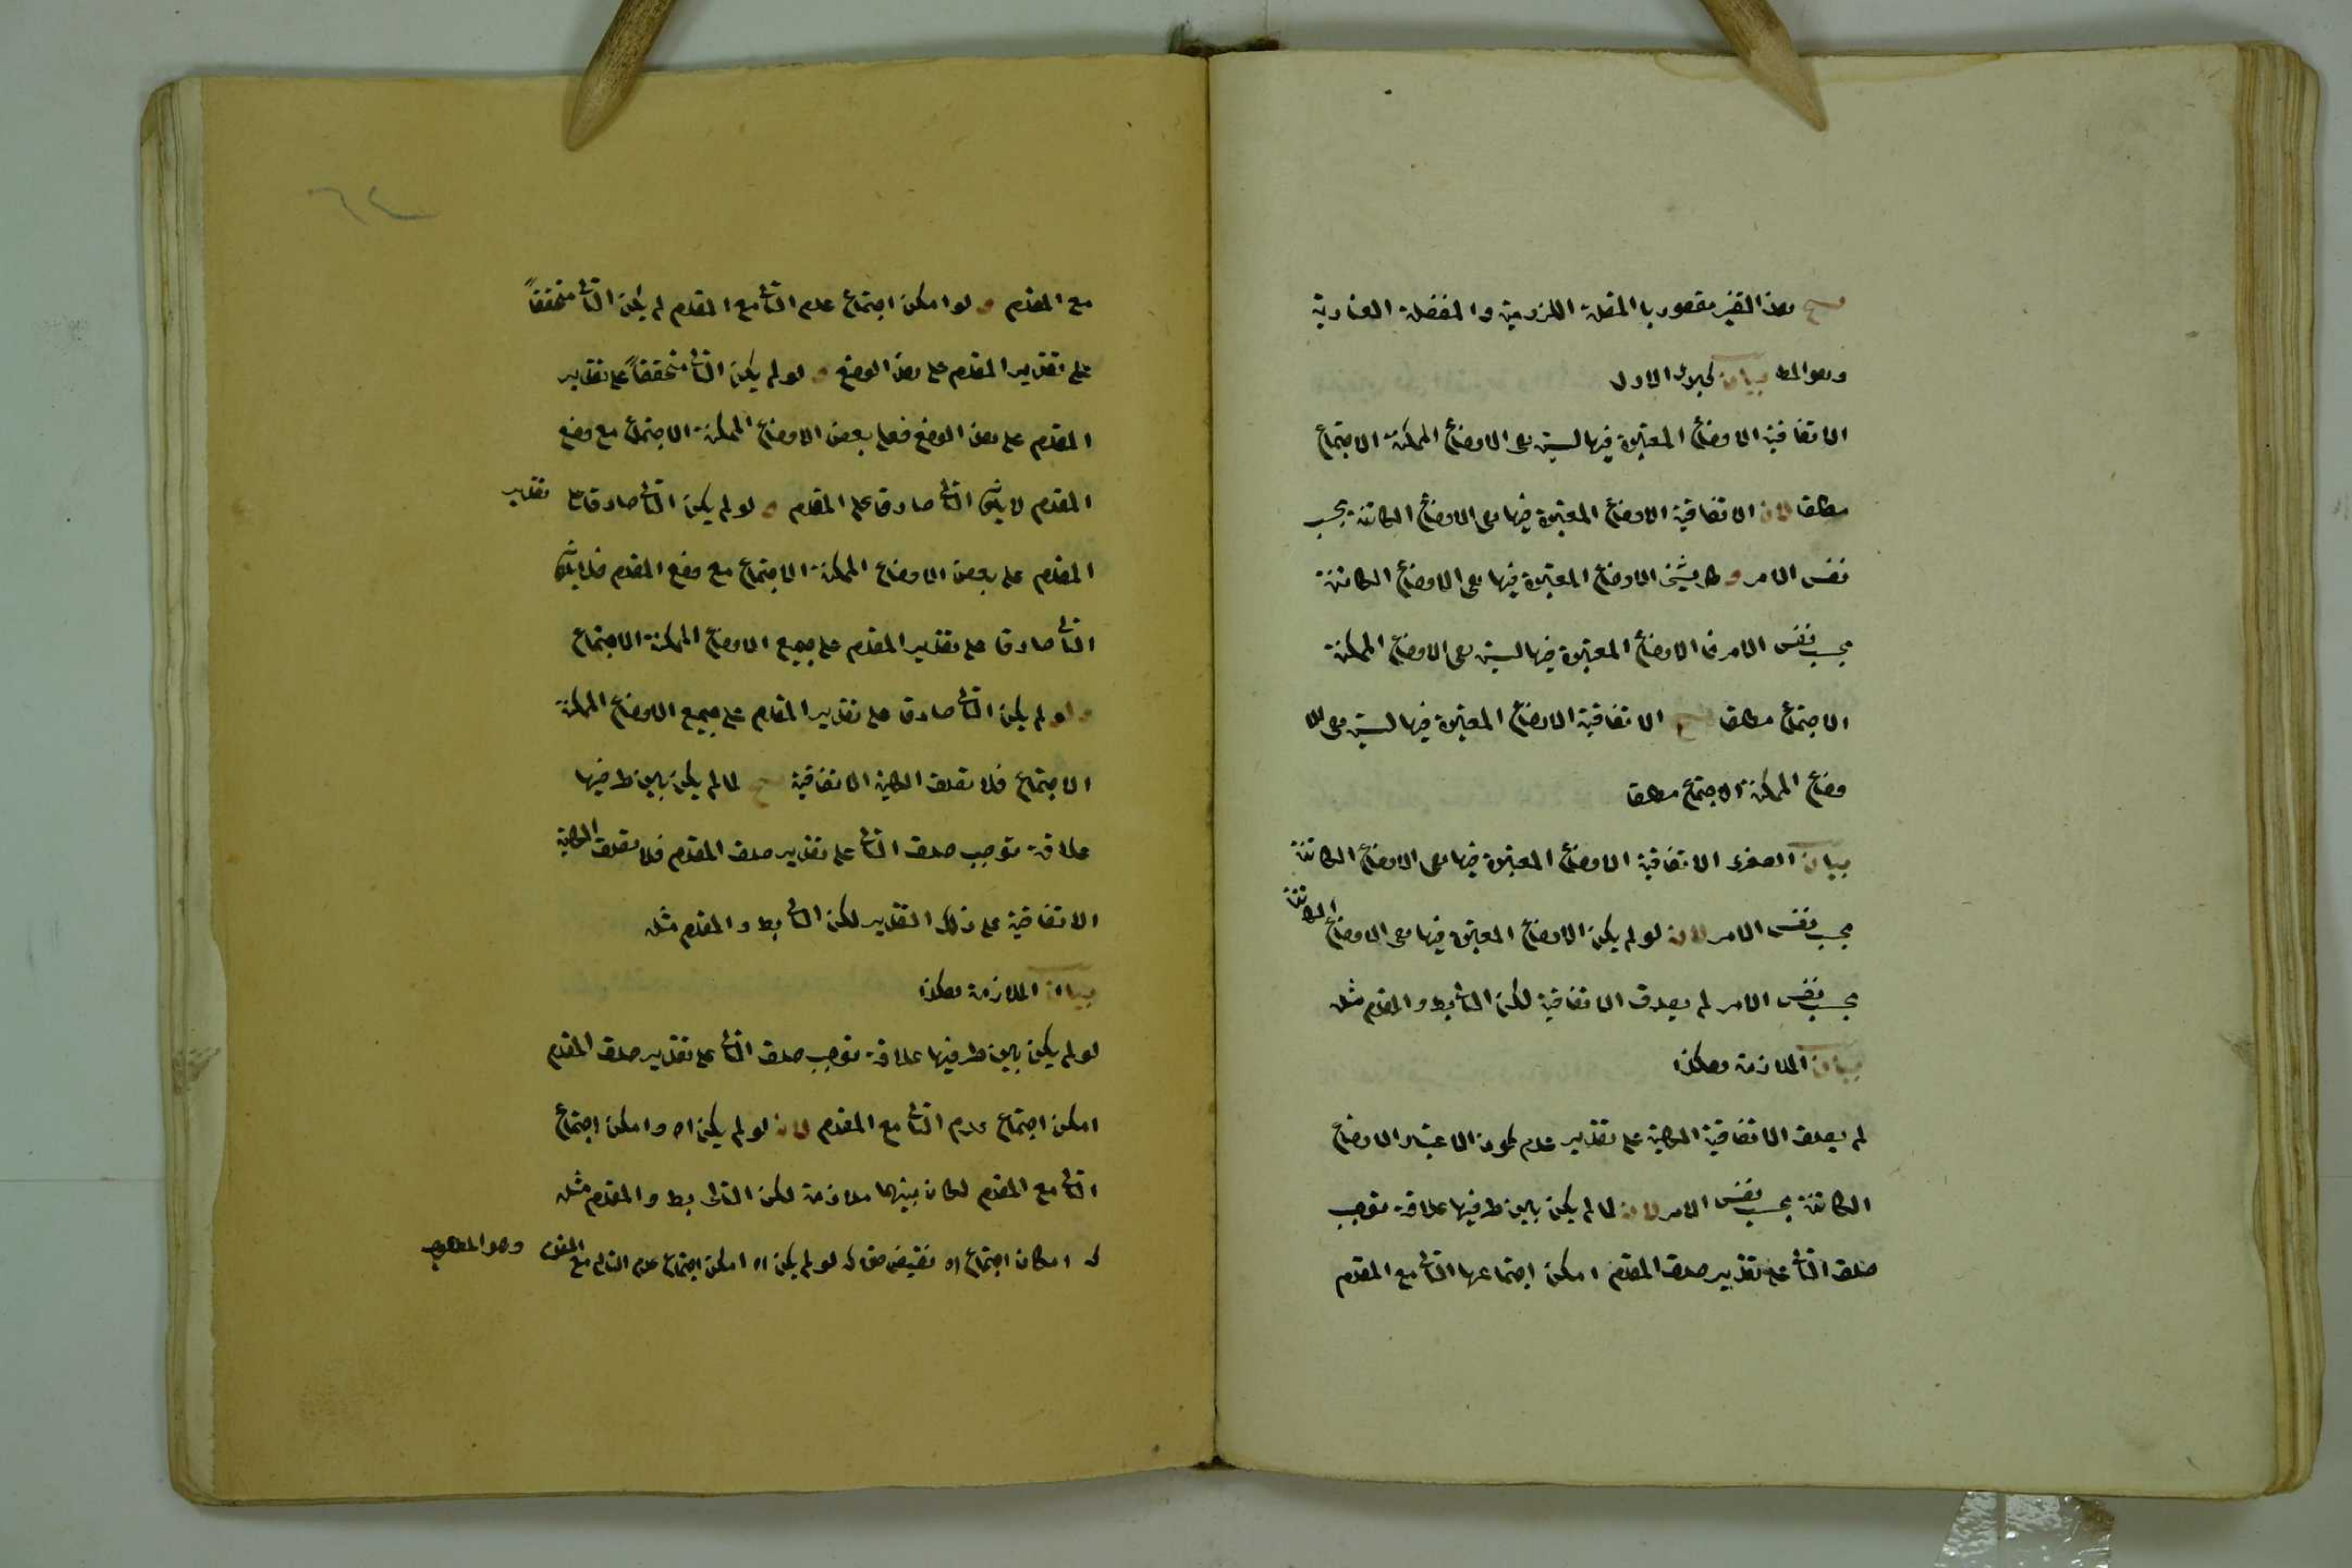 هذا القيد مقصور با المتصلة اللزومية والمنفصلة العنادية
وهو المط بيان كبرى الاول
الاتفاقية الاوضاع المعتبرة فيها ليست هى الاوضاع الممكنة الاجتماع
مطلقا لان الاتفاقية الاوضاع المعتبرة فيها هى الاوضاع الكائنة بحسب
نفس الامر و كل شيئ الاوضاع المعتبرة فيها هى الاوضاع الكائنة
بحسب نفس الامر فا الاوضاع المعتبرة فيها ليست هى الاوضاع الممكنة
الاجتماع مطلقا الاتفاقية الاوضاع المعتبرة فيها ليست هى الا
وضاع الممكنة الاجتماع مطلقا
بيان الصغرى الاتفاقية الاوضاع المعتبرة فيها هى الاوضاع الكائنة
بحسب نفس الامر لان لو لم يكن الاوضاع المعتبرة فيها هى الاوضاع الكائنة
بحسب نفس الامر لم يصدق الاتفاقية لكن التا بط والمقدم مثله
بيان الملازمة هكذا
لم يصدق الاتفاقية الكلية على تقدير عدم كون الاعتبار الاوضاع
الكائنة بحسب نفس الامر لان لما لم يكن بين طرفيها علاقة توجب
صدق التالى على تقدير صدق المقدم امكن اجتماعها التالى مع المقدم
٦٤
مع المقدم و لو امكن اجتماع عدم التالى مع المقدم لم يكن التالى متحققاً
على تقدير المقدم على هذا الوضع و لو لم يكن التالى متحققاً على تقدير
المقدم على هذا الوضع فعلى بعض الاوضاع الممكنة الاجتماع مع وضع
المقدم لا يكون التالى صادقا على المقدم و لو لم يكن التالى صادقا على تقدير
المقدم على بعض الاوضاع الممكنة الاجتماع مع وضع المقدم فلا يكون
التالى صادقا على تقدير المقدم على جميع الاوضاع الممكنة الاجتماع
و لو لم يكن التالى صادقا على تقدير المقدم على جميع الاوضاع الممكنة
الاجتماع فلا تصدق الكلية الاتفاقية لما لم يكن بين طرفيها
علاقة توجب صدق التالى على تقدير صدق المقدم فلا تصدق الكلية
الاتفاقية على ذلك التقدير لكن التالى بط والمقدم مثله
بيان الملازمة هكذا
لو لم يكن بين طرفيها علاقة توجب صدق التالى على تقدير صدق المقدم
امكن اجتماع عدم التالى مع المقدم لان لو لم يكن اه وامكن اجتماع
التالى مع المقدم لكان بينهما ملازمة لكن التالى بط والمقدم مثله
امكان اجتماع اه نقيض لو لم يكن اه امكن اجتماع عدم التالى مع المقدم وهو المطلوب